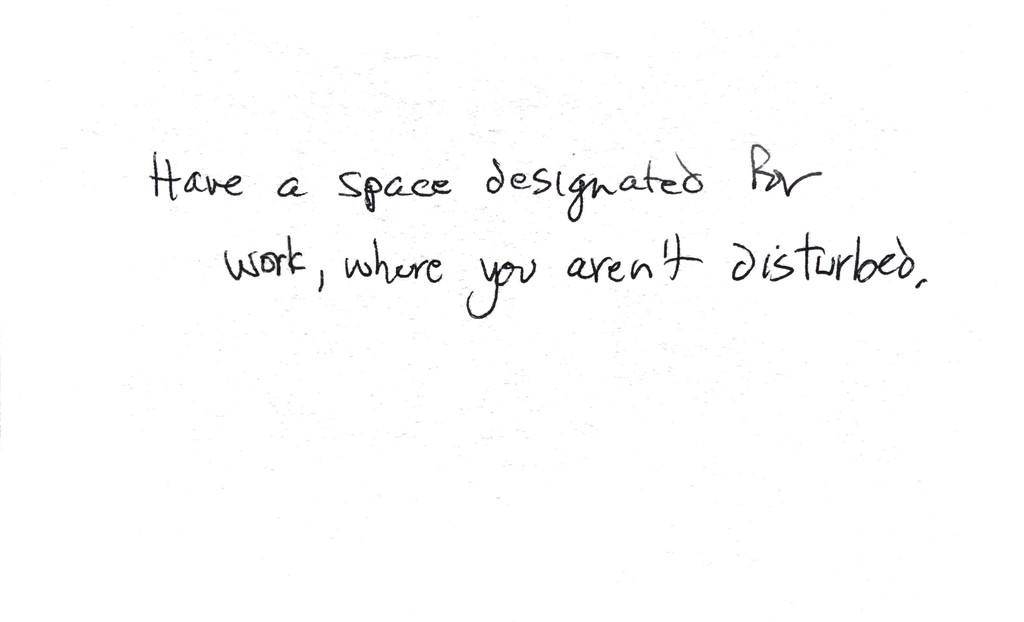 Have a space designated for
work, where you aren't disturbed.